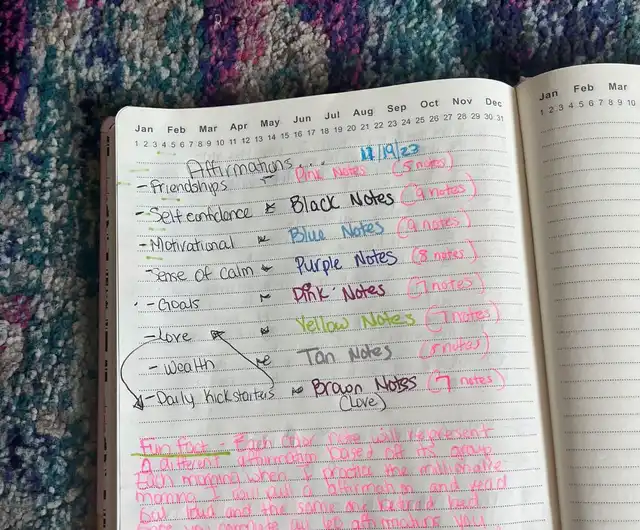 Jan Feb Mar Apr May Jun Jul Aug Sep Oct Nov Dec
1 2 3 4 5 6 7 8 9 10 11 12 13 14 15 16 17 18 19 20 21 22 23 24 25 26 27 28 29 30 31
Affirmations... 11/19/23
- Friendships - Pink Notes (5 notes)
- Self confidence Black Notes (9 notes)
- Motivational Blue Notes (9 notes)
- Sense of calm Purple Notes (8 notes)
- Goals Pink Notes (7 notes)
- Love Yellow Notes (7 notes)
- Wealth Tan Notes (5 notes)
- Daily Kickstarters Brown Notes (7 notes)
(Love)
Fun Fact - Each color note will represent
A different affirmation based off its group
Each morning when I practice the
morning I will pull a affirmation and read
out loud and the same
Jan Feb Mar
1 2 3 4 5 6 7 8 9 10